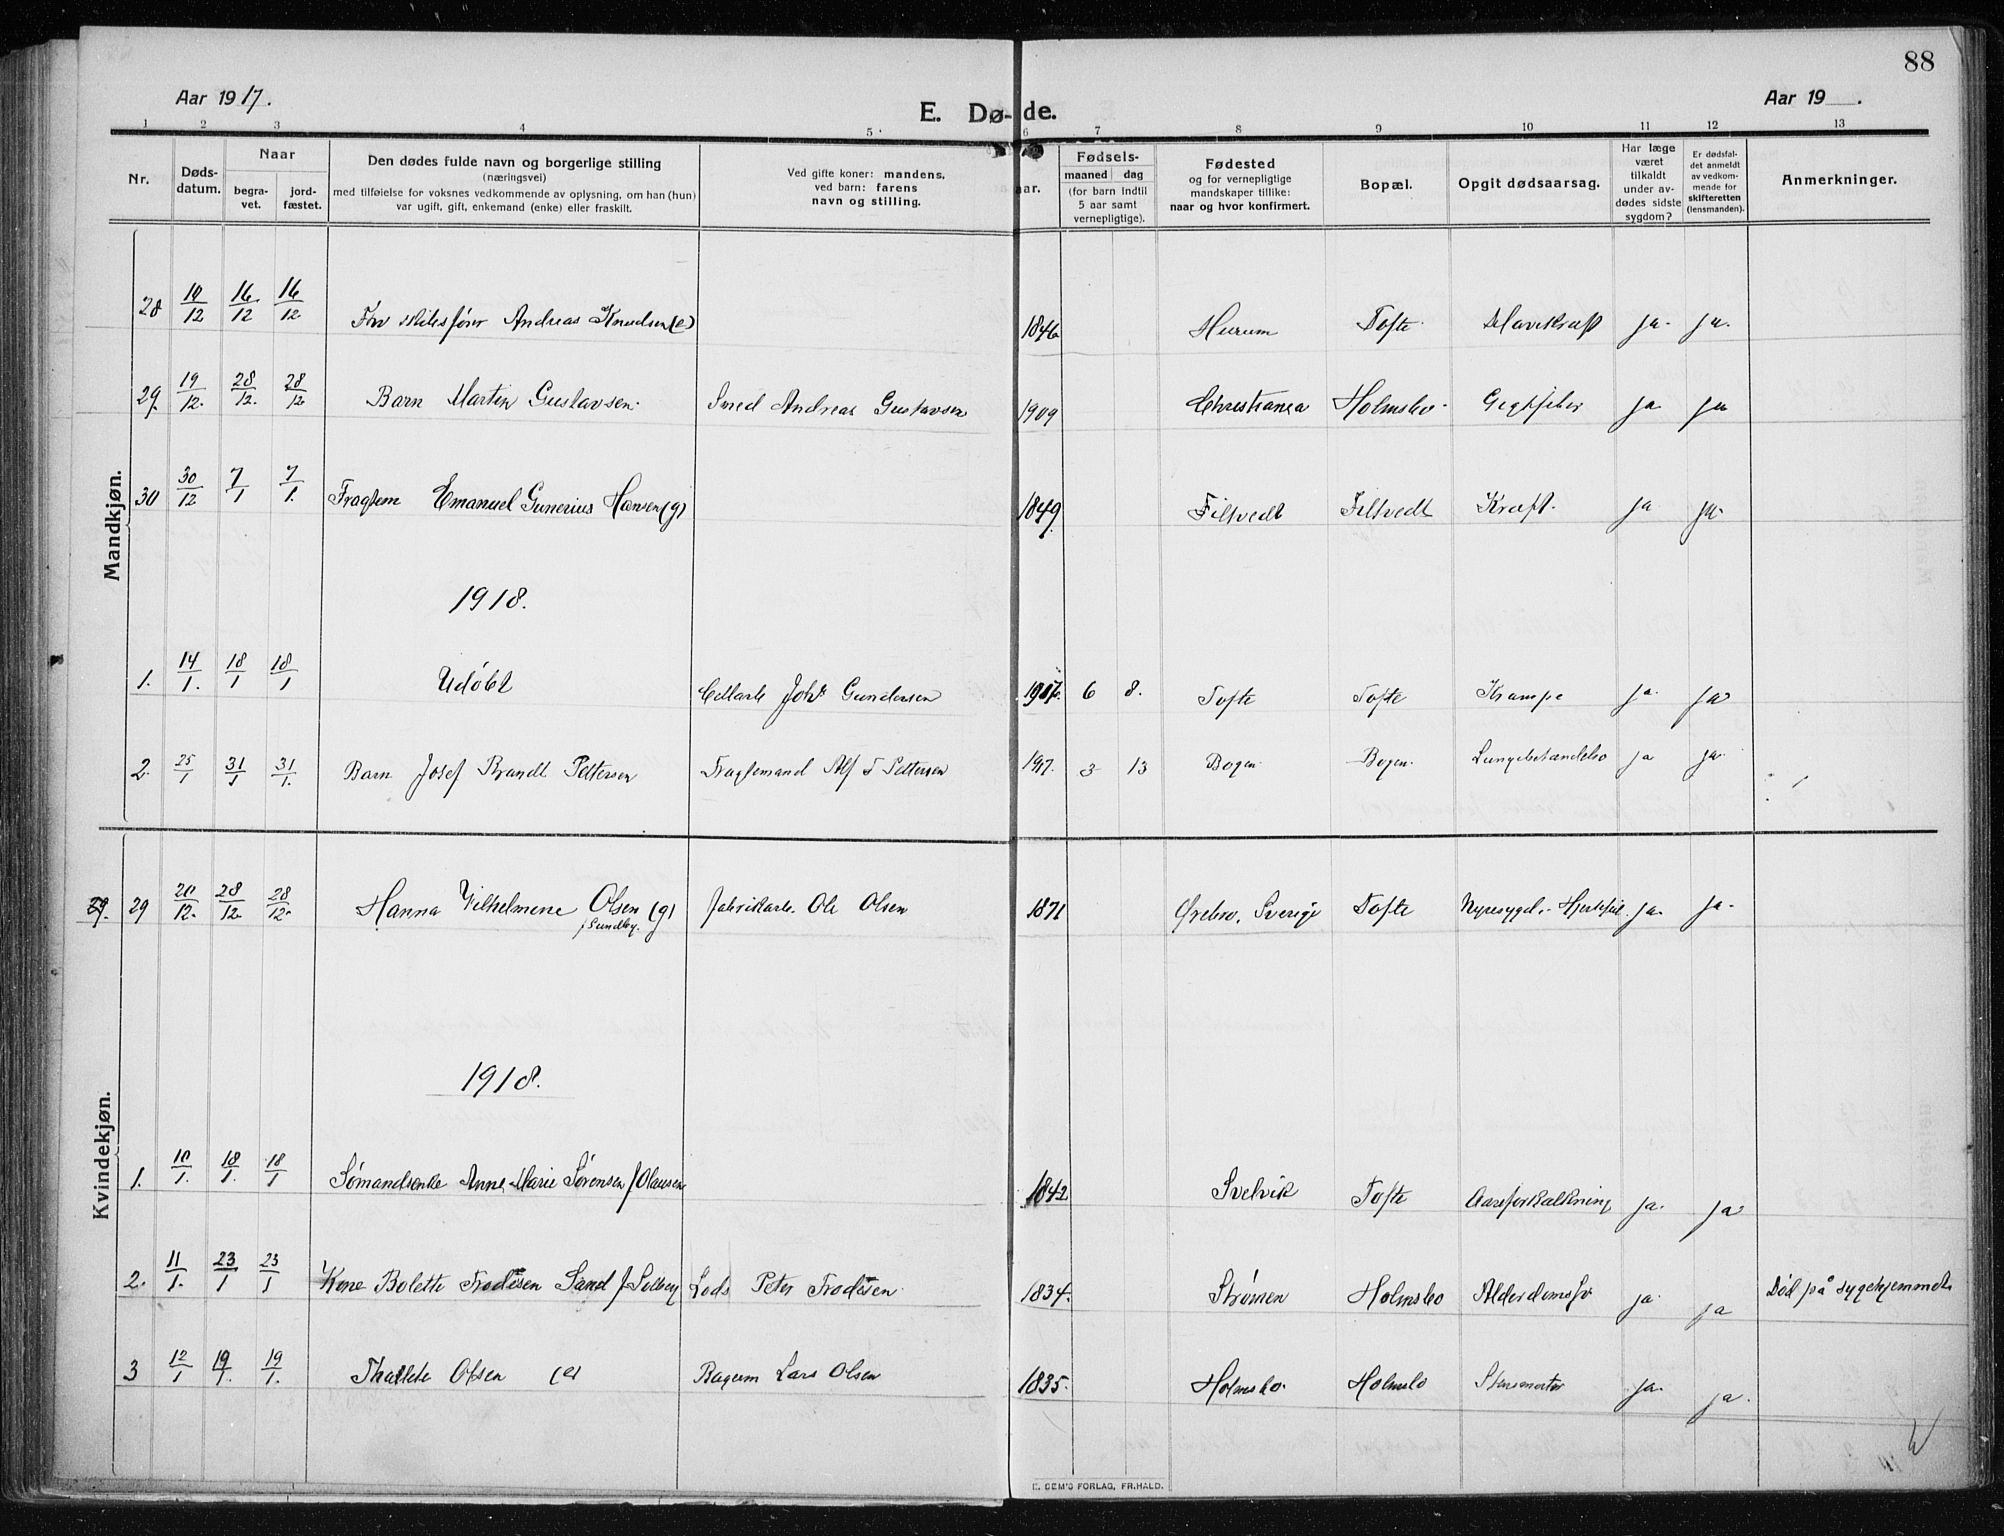 88
Aar 1917.
E. Dø- de.
Aar 19 .
1 2 3 4 5 6 7 8 9 10 11 12 13
Nr.
Døds-
datum.
Naar
begra-
vet.
jord-
fæstet.
Den dødes fulde navn og borgerlige stilling
(næringsvei)
med tilføielse for voksnes vedkommende av oplysning, om han (hun)
var ugift, gift, enkemand (enke) eller fraskilt.
Ved gifte koner: mandens,
ved barn: farens
navn og stilling.
aar.
Fødsels-
maaned dag
(for barn indtil
5 aar samt
vernepligtige).
Fødested
og for vernepligtige
mandskaper tillike:
naar og hvor konfirmert.
Bopæl.
Opgit dødsaarsag.
Har læge
været
tilkaldt
under av-
dødes sidste
sygdom?
Er dødsfal-
det anmeldt
av vedkom-
mende for
skifteretten
(lensmanden).
Anmerkninger.
Mandkjøn.
28 10/12 16/12 16/12 Andreas Knudsen (e) 1846 Hurum Tofte Mavekræft ja. ja.
29. 19/12. 28/12. 28/12 Barn Martin Gustavsen. Smed Andreas Gustavsen 1909 Christiania Holmsbo. Gigtfeber ja ja
30 30/12 7/1 7/1. Fragtem Emanuel Gunerius Hansen (g) 1849. Filtvedt Filtvedt Kræft. ja ja.
1918.
1. 14/1. 18/1 18/1 Udøbt Joh. Gundersen 1917. 6 8. Tofte Tofte Krampe ja. ja
2. 25/1 31/1 31/1. Barn Josef Brandt Pettersen Fragtemand Alf T Pettersen 1917. 3 13 Bogen. Bogen. ja ja.
Kvindekjøn.
29. 29 20/12. 28/12. 28/12. Hanna Vilhelmine Olsen (g) Fabrikarb. Ole Olsen 1871 Ørebro, Sverige Tofte Nyresygd. Hjertefeil. ja. ja.
f Sundby.
1918.
1. 10/1. 18/1. 18/1 Sømandsenke Anne Marie Sørensen f Olausen 1842 Svelvik Tofte Aareforkalkning ja. ja
2. 11/1. 23/1 23/1 Kone Bolette Trodesen Sand f Solberg Lods Peter Trodesen. 1834. Strømen Holmsbo Alderdomssv ja. ja Død på sygehjemmet
3 12/1 19/1. 19/1. Olsen (e) Lars Olsen 1835. Holmsbo. Holmsbo ja. ja.
E. SEM'S FORLAG, FR.HALD.